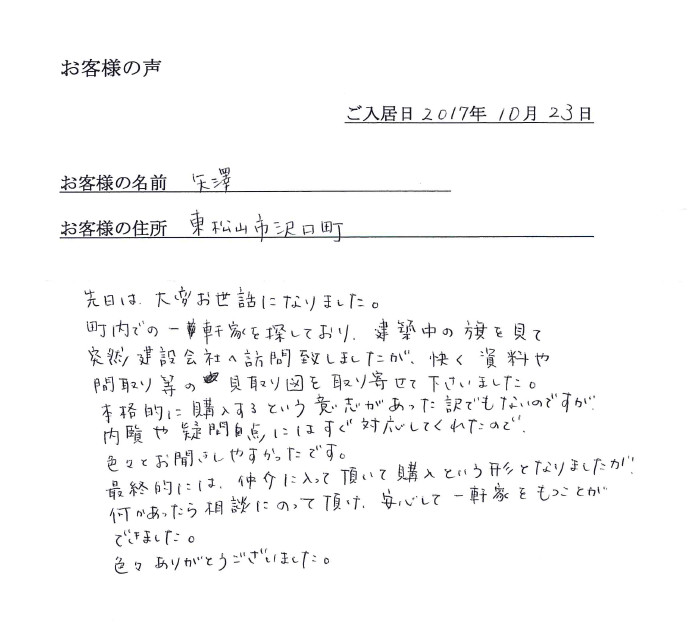 お客様の声
ご入居日 2017年 10月 23日
お客様の名前 矢澤
お客様の住所 東松山市沢口町
先日は、大変お世話になりました。
町内での一軒家を探しており、建築中の旗を見て
突然建設会社へ訪問致しましたが、快く資料や
間取り等の見取り図を取り寄せて下さいました。
本格的に購入するという意志があった訳でもないのですが、
内覧や疑問点にはすぐ対応してくれたので、
色々とお聞きしやすかったです。
最終的には、仲介に入って頂いて購入という形となりましたが、
何かあったら相談にのって頂け、安心して一軒家をもつことが
できました。
色々ありがとうございました。